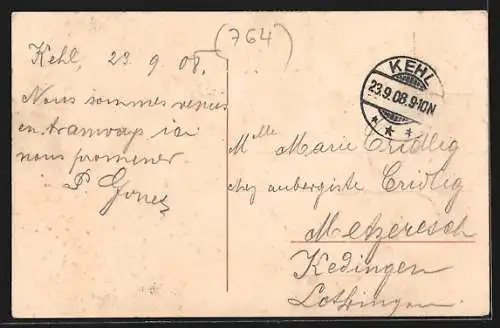 (764)
Kehl, 23. 9. 08.
Nous sommes venus
en tramways ici
nous promener
KEHL
23.9.08.9-10N
Mlle Marie Cridlig
chez aubergiste Cridlig
Metzeresch
Kedingen
Lothringen